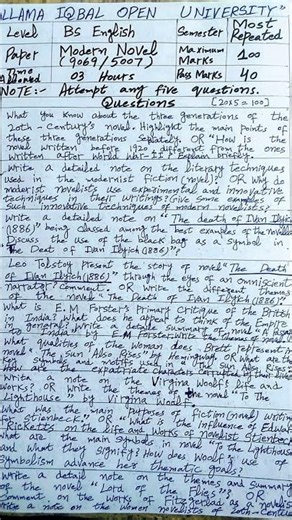 "ALLAMA IQBAL OPEN UNIVERSITY"
Level BS English Semester Most Repeated
Paper Modern Novel (9069/5007) Maximum Marks 100
Time Allowed 03 Hours Pass Marks 40
NOTE:- Attempt any five questions.
Questions [20x5=100]
What you know about the three generations of the
20th-Century's novel. Highlight the main points of
these three generations Seperately. OR "How is the
novel written before 1920 different from the ones
written after World War-II? Explain briefly.
Write a detailed note on the literary techniques
used in the modernist fiction (novel)? OR Why do
modernist novelists use experimental and innovative
techniques in their writings? Give some examples of
such innovative techniques of modern novelists?
Write a detailed note on "The death of Ivan Ilyich
(1886)" being classed among the best examples of the novella
Discuss the use of the black bag as a symbol in
The Death of Ivan Ilyich (1886)"?
Leo Tolstoy present the story of novel "The Death
of Ivan Ilyich (1886)" through the eyes of an Omniscient
narrator? Comment. OR Write the different
of the novel "The Death of Ivan Ilyich (1886)"?
What is E.M Forster's Primary Critique of the British
in India? What does he appear to think of the Empire
in general? Write a detaile Summary of novel "A
to India" by E.M Forster Write the Themes of novel
What qualities of the woman does Brett represent in
novel "The Sun Also Rises" by Hemingway OR What are the
Symbols and motifs used in "The Sun Also Rises"
How are the expatriate Characters
Write a note on the Virgina Woolf's life and
works? OR Write the themes of the novel "To The
Lighthouse" by Virgina Woolf.
What was the main purposes of fiction (novel) writing
Stienbeck" OR "What is the influence of Edward
Ricketts on the Life and Works of novelist Stienbeck
What are the main Symbols in novel "To the Lighthouse
and what they signify? How does Woolf's use of
Symbolism advance her thematic goals?
Write a detailed note on the themes and Summary
of the novel "Lord of the Flies"? OR
Comment on the works of Fitzgerald as a novelist
Write a note on the women novelists of 20th-Century